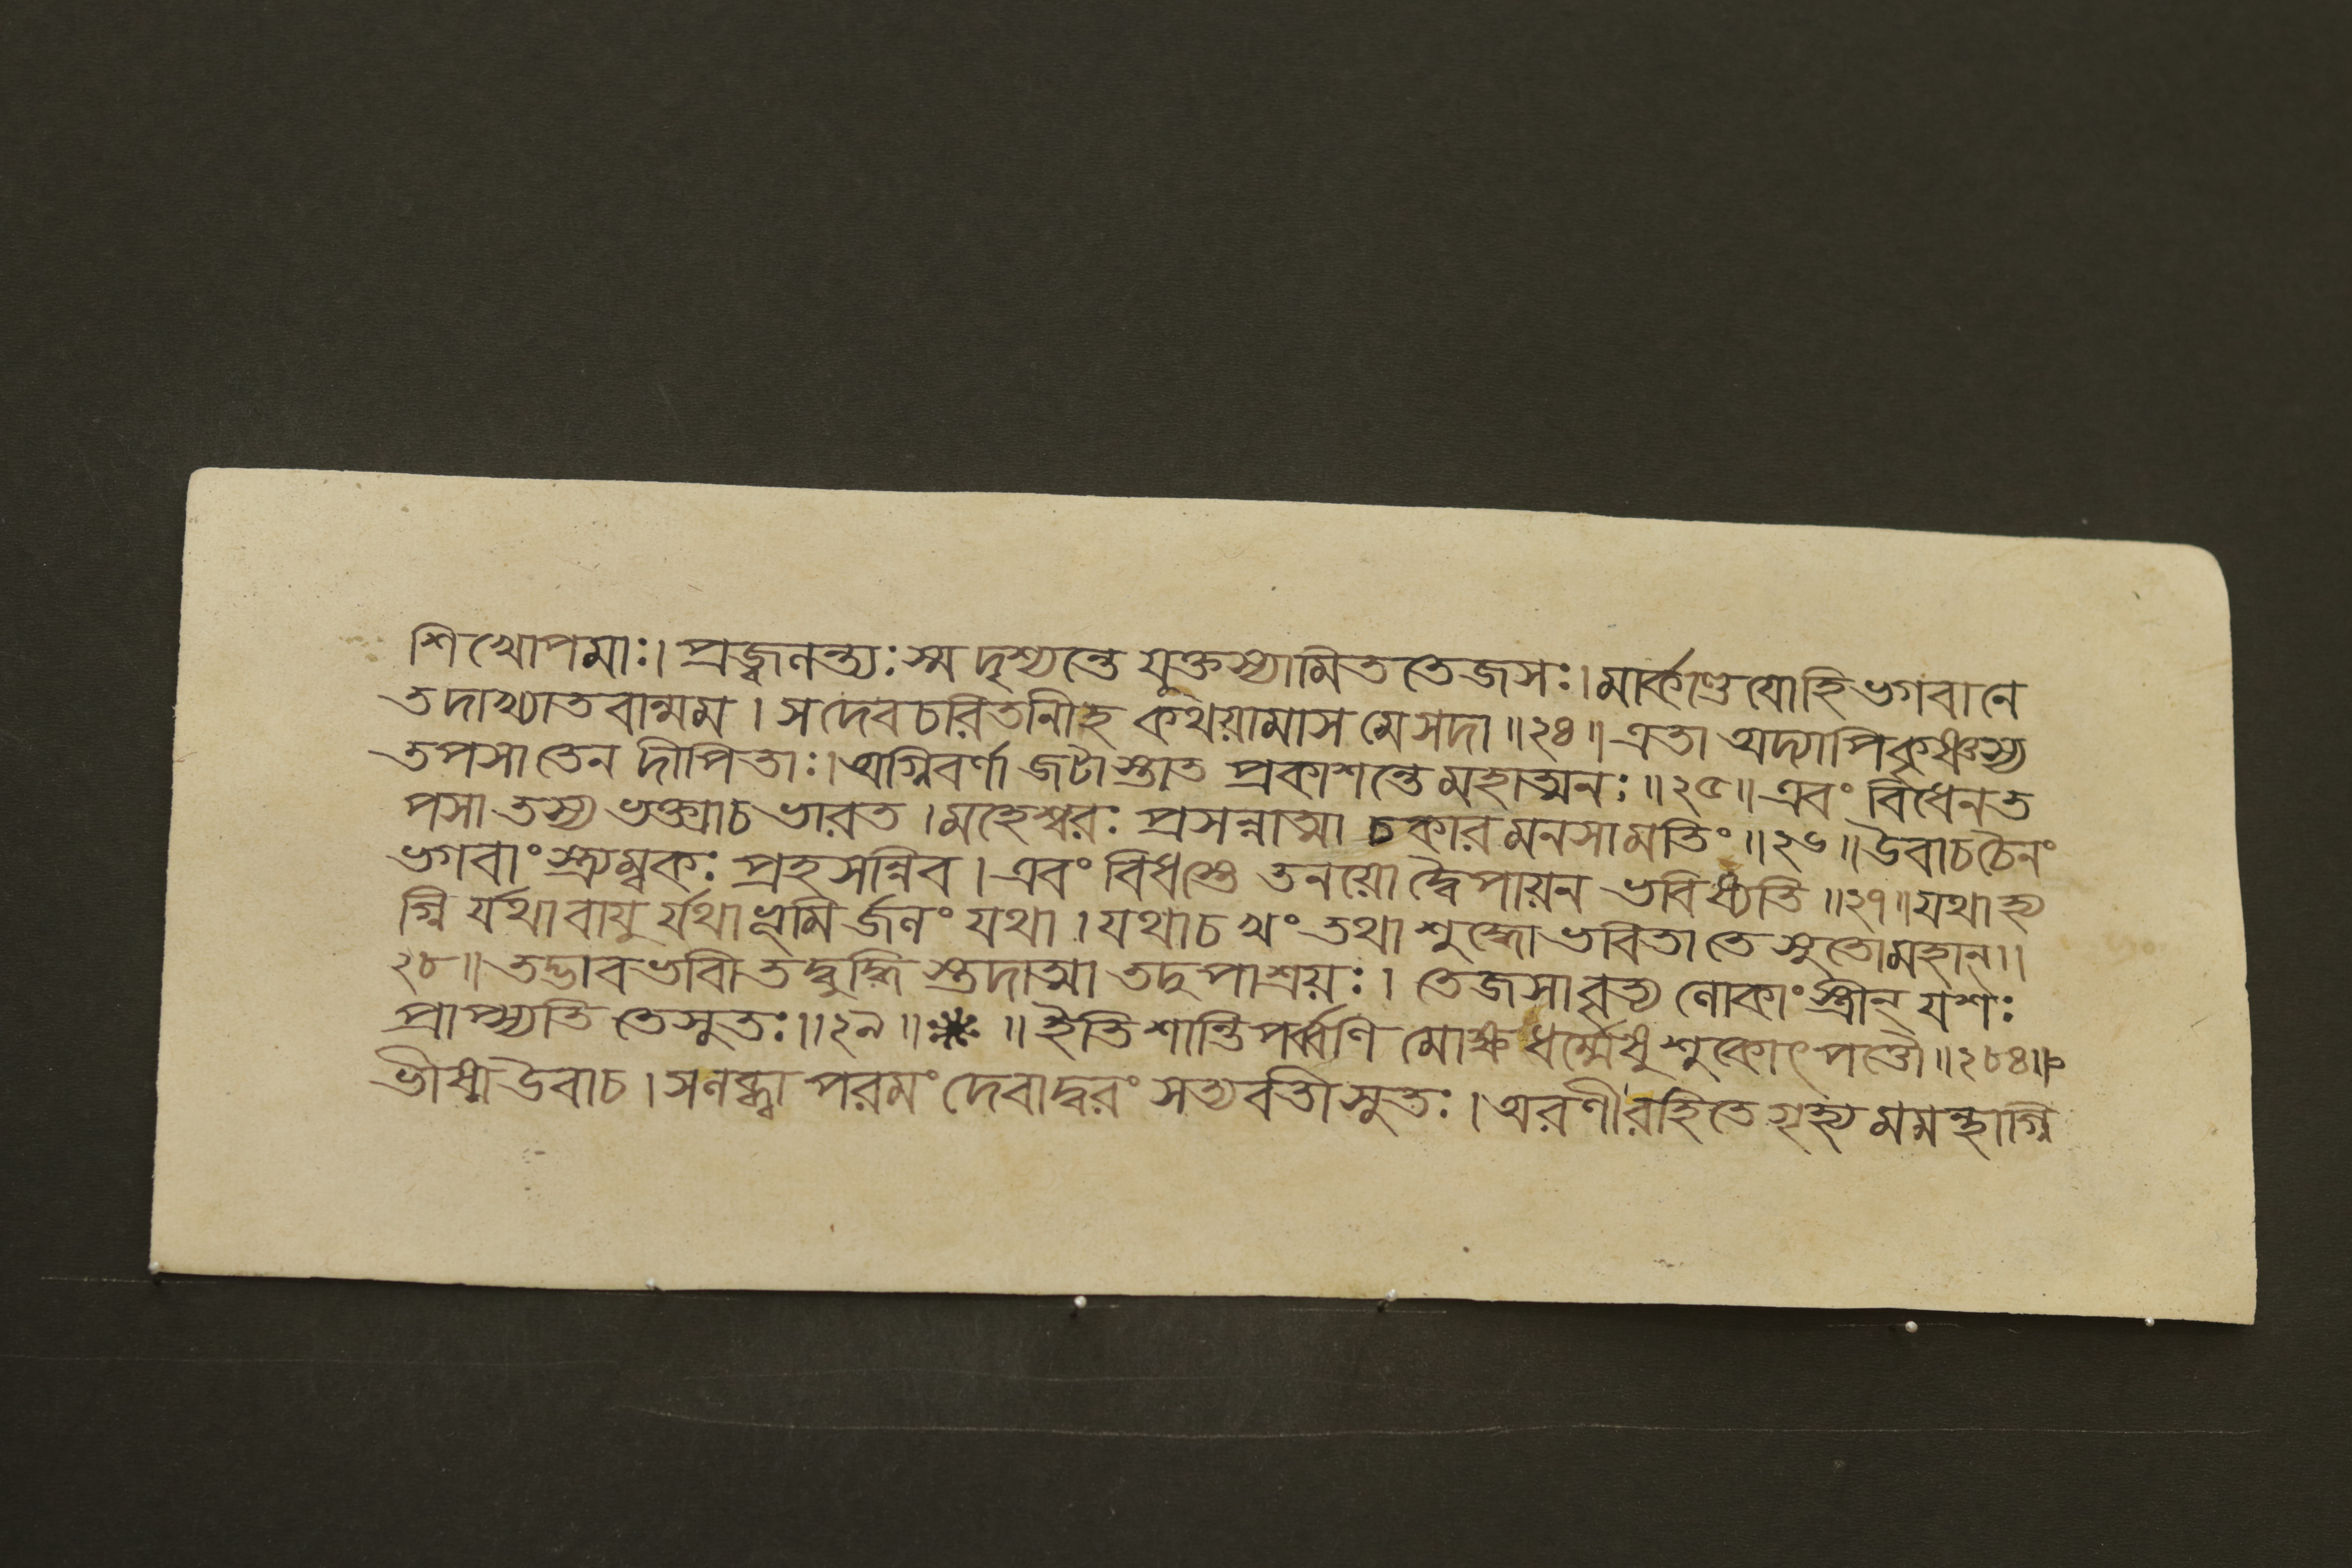 শিখোপমাঃ। প্রজ্বলন্ত্যঃ স্ম দৃশ্যন্তে যুক্তস্যামিত তেজসঃ। মার্কণ্ডেয়োহি ভগবানে
তদাখ্যাতবান্মম। স দেবচরিতানীহ কথয়ামাস মে সদা॥২৪॥ এতা অদ্যাপি কৃষ্ণস্য
তপসা তেন দীপিতাঃ। অগ্নিবর্ণা জটাস্তাত প্রকাশন্তে মহাত্মনঃ॥২৫॥ এবং বিধেন ত
পসা তস্য ভক্ত্যাচ ভারত। মহেশ্বরঃ প্রসন্নাত্মা চকার মনসা মতিং॥২৬॥ উবাচ চৈনং
ভগবাংস্ত্র্যম্বকঃ প্রহসন্নিব। এবং বিধস্তে তনয়ো দ্বৈপায়ন ভবিষ্যতি॥২৭॥ যথাহ্য
গ্নি র্যথা বায়ু র্যথা ভূমি র্জলং যথা। যথাচ খং তথা শুদ্ধো ভবিতা তে সুতো মহান্॥
২৮॥ তদ্ভাবভাবী তদ্বুদ্ধি স্তদাত্মা তদুপাশ্রয়ঃ। তেজসাবৃত্য লোকাংস্ত্রীন্ যশঃ
প্রাপ্স্যতি তে সুতঃ॥২৯॥ ※ ॥ ইতি শান্তিপর্ব্বণি মোক্ষ ধর্ম্মেষু শুকোৎপত্তৌ॥২৮৪॥
ভীষ্ম উবাচ। স লব্ধ্বা পরমং দেবাদ্বরং সত্যবতীসুতঃ। অরণীরহিতে গৃহ্য মমন্থাগ্নি